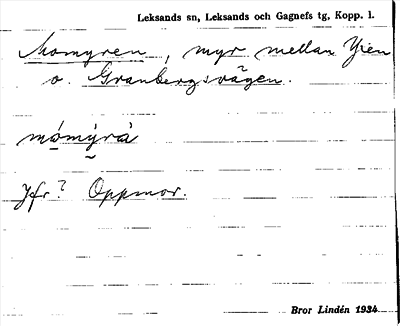 Leksands sn, Leksands och Gagnefs tg, Kopp. l.
Momyren, myr mellan
o. Granbergsvägen.
mómýrà
Jfr? Oppmor.
Bror Lindén 1934